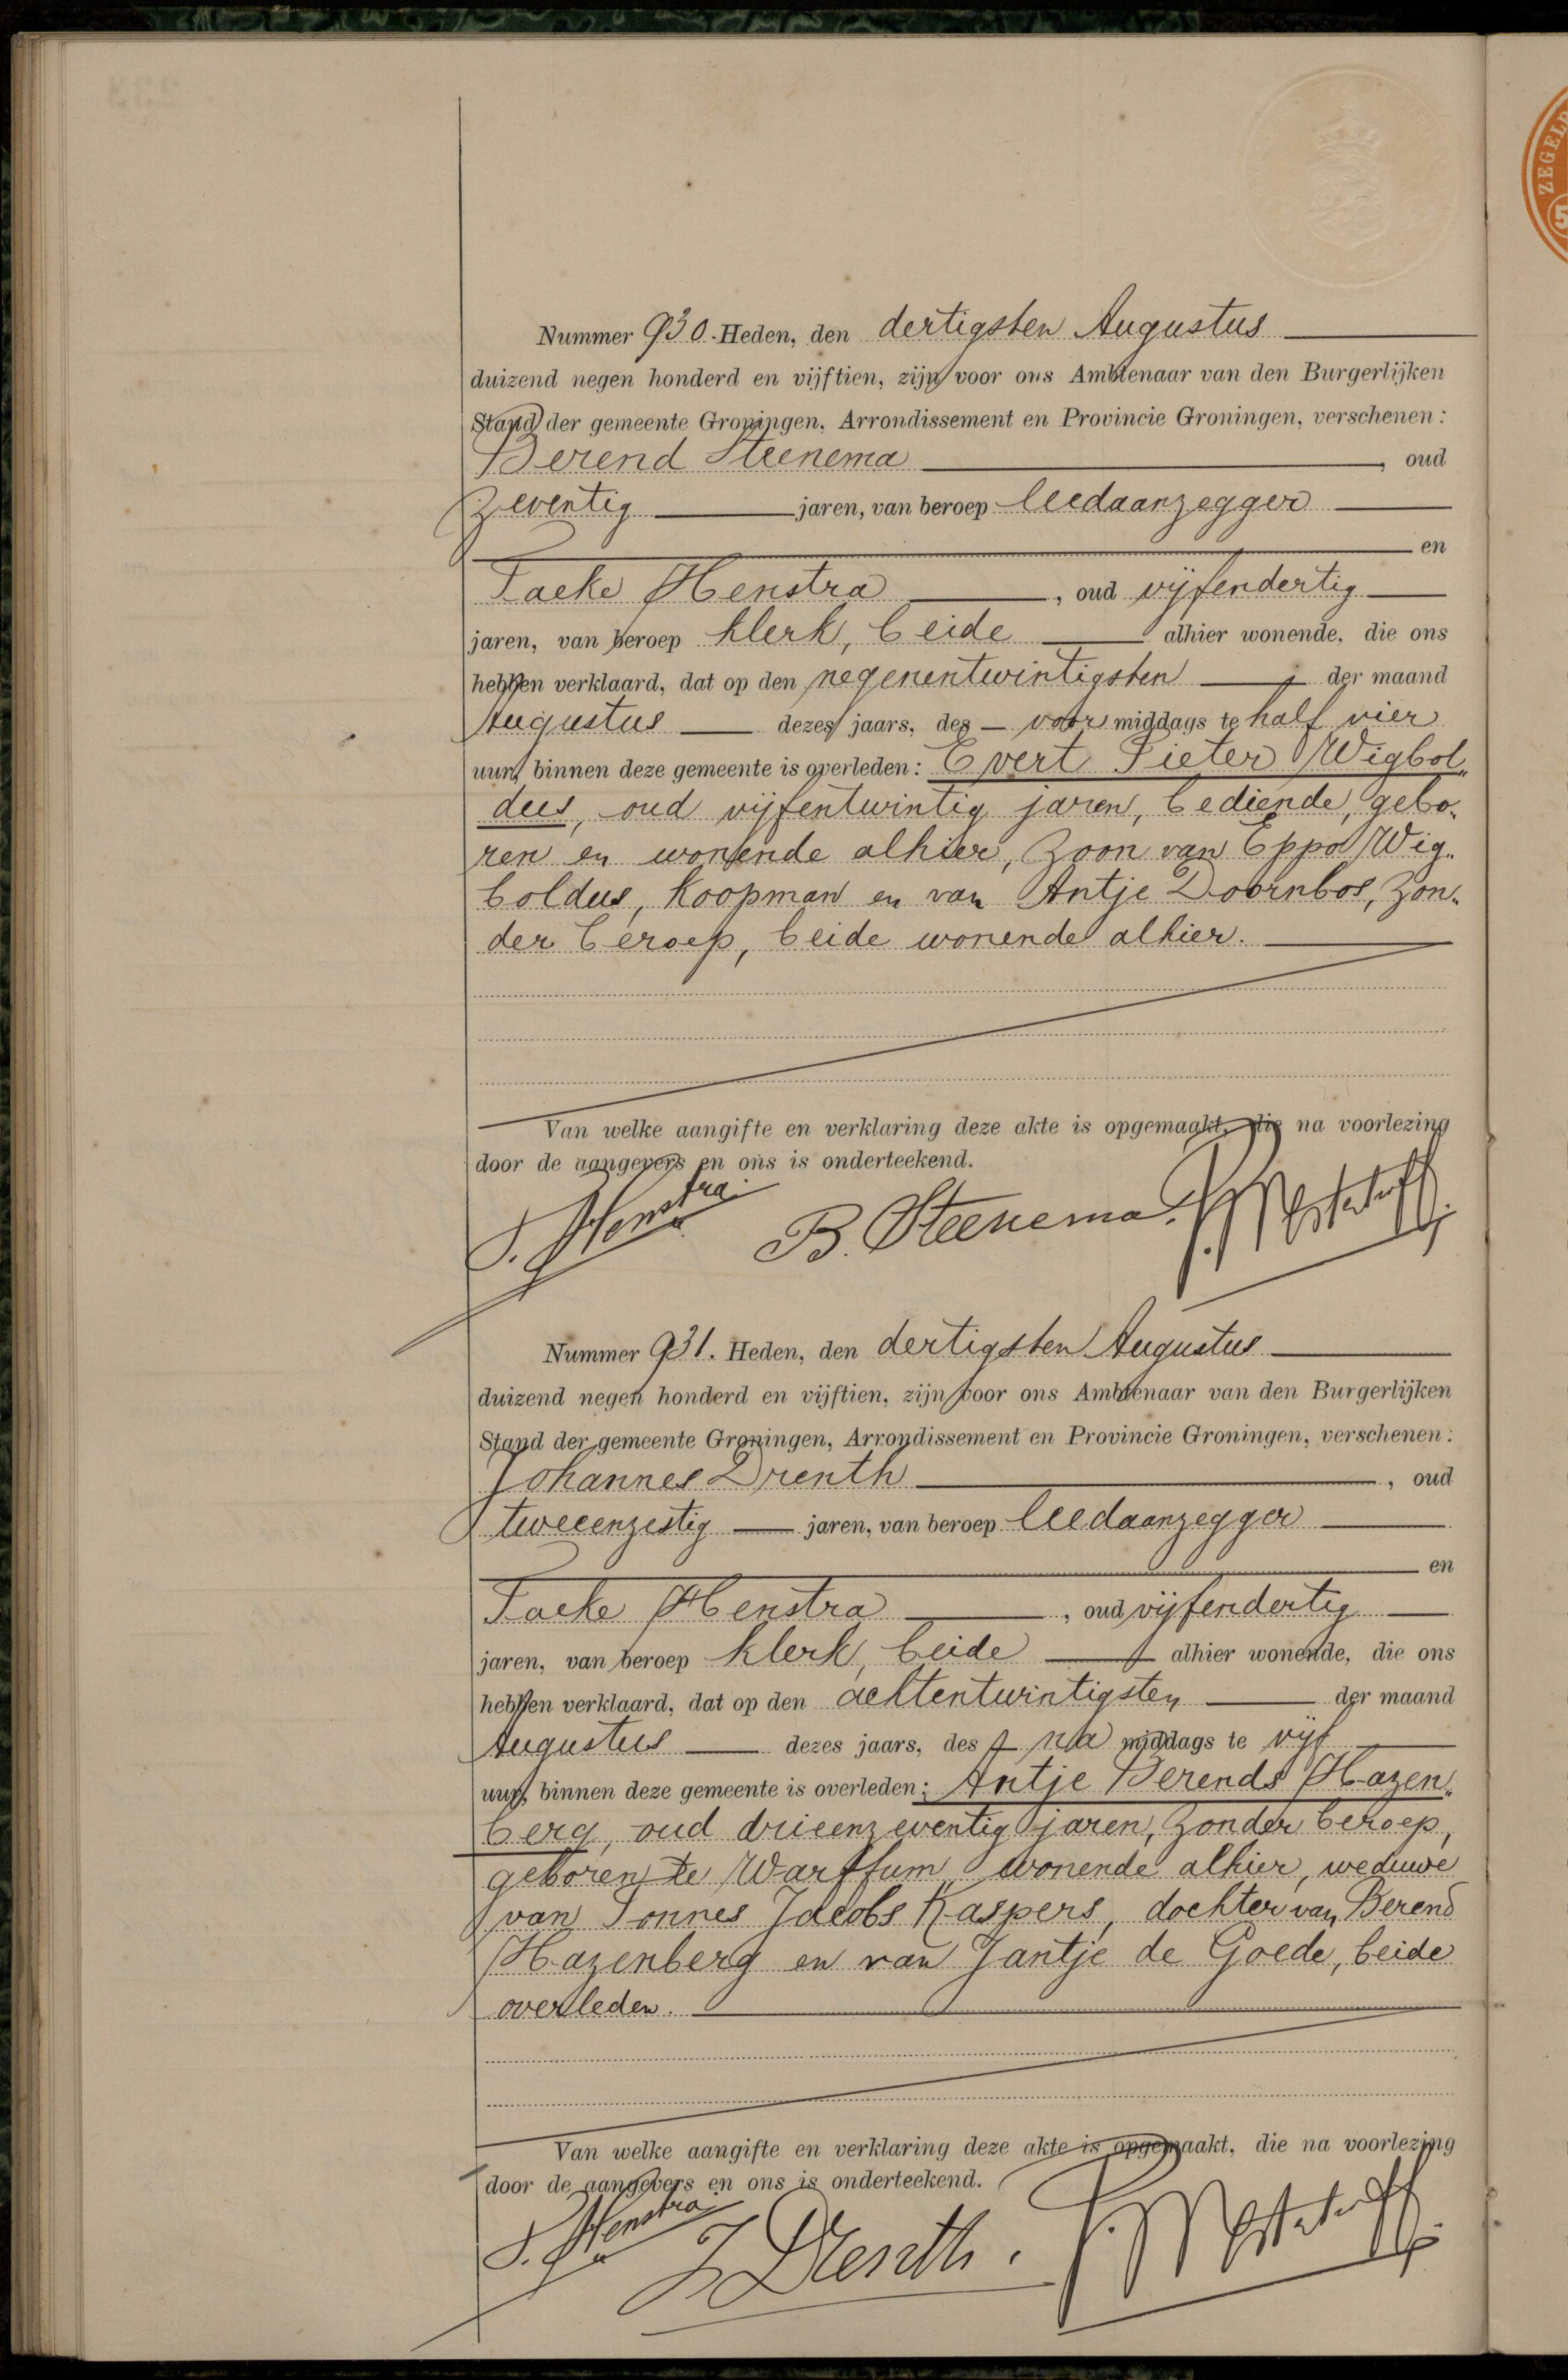 Nummer 930. Heden, den dertigsten Augustus
duizend negen honderd en vijftien, zijn voor ons Ambtenaar van den Burgerlijken
Stand der gemeente Groningen, Arrondissement en Provincie Groningen, verschenen:
Berend Steenema, oud
zeventig jaren, van beroep leedaanzegger
en
Taeke Henstra, oud vijfendertig
jaren, van beroep klerk, beide alhier wonende, die ons
hebben verklaard, dat op den negenentwintigsten der maand
Augustus dezes jaars, des voormiddags te half vier
uur, binnen deze gemeente is overleden: Evert Pieter Wigbol„
dus, oud vijfentwintig jaren, bediende, gebo„
ren en wonende alhier, zoon van Eppo Wig„
boldus, koopman en van Antje Doornbos, zon„
der beroep, beide wonende alhier.
Van welke aangifte en verklaring deze akte is opgemaakt, die na voorlezing
door de aangevers en ons is onderteekend.
T. Henstra. B. Steenema.
Nummer 931. Heden, den dertigsten Augustus
duizend negen honderd en vijftien, zijn voor ons Ambtenaar van den Burgerlijken
Stand der gemeente Groningen, Arrondissement en Provincie Groningen, verschenen:
Johannes Drenth, oud
tweeenzestig jaren, van beroep leedaanzegger
en
Taeke Henstra, oud vijfendertig
jaren, van beroep klerk, beide alhier wonende, die ons
hebben verklaard, dat op den achtentwintigsten der maand
Augustus dezes jaars, des namiddags te vijf
uur, binnen deze gemeente is overleden: Antje Berends Hazen„
berg, oud drieenzeventig jaren, zonder beroep,
geboren te Warffum, wonende alhier, weduwe
van Tonnes Jacobs Kaspers, dochter van Berend
Hazenberg en van Jantje de Goede, beide
overleden.
Van welke aangifte en verklaring deze akte is opgemaakt, die na voorlezing
door de aangevers en ons is onderteekend.
T. Henstra J Drenth.
ZEGEL
5